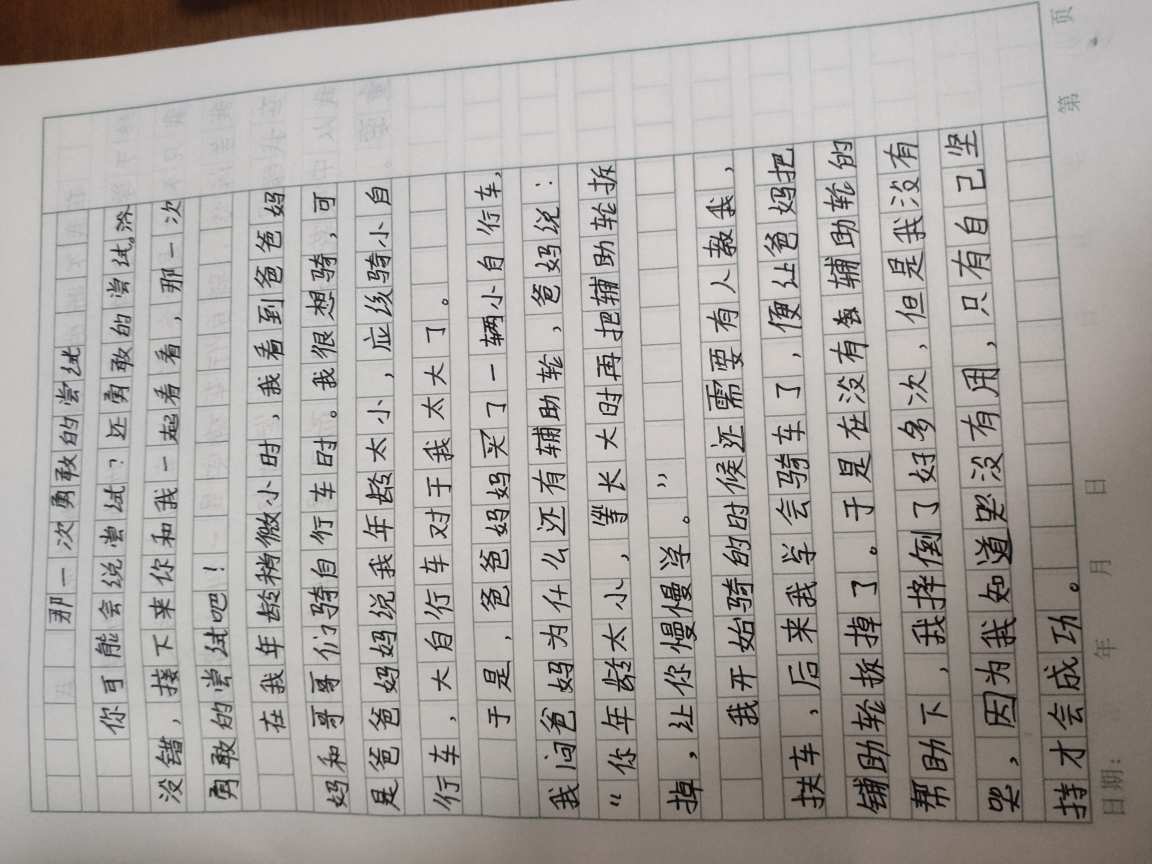 那一次勇敢的尝试
你可能会说尝试？还勇敢的尝试。
没错，接下来你和我一起看看，那一次
勇敢的尝试吧！
在我年龄稍微小时，我看到爸爸妈
妈和哥哥们骑自行车时。我很想骑，可
是爸爸妈妈说我年龄太小，应该骑小自
行车，大自行车对于我太大了。
于是，爸爸妈妈买了一辆小自行车，
我问爸妈为什么还有辅助轮，爸妈说：
“你年龄太小，等长大时再把辅助轮拆
掉，让你慢慢学。”
我开始骑的时候还需要有人教我，
扶车，后来我学会骑车了，便让爸妈把
辅助轮拆掉了。于是在没有辅助轮的
帮助下，我摔倒了好多次，但是我没有
哭，因为我知道哭没有用，只有自己坚
持才会成功。
日期： 年 月 日
第 页